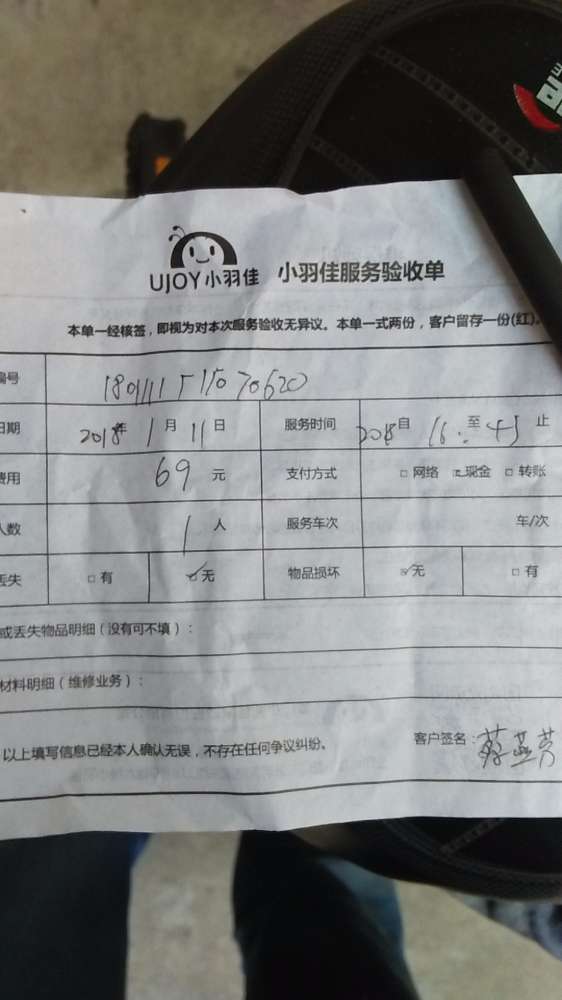 UJOY小羽佳 小羽佳服务验收单
本单一经核签，即视为对本次服务验收无异议。本单一式两份，客户留存一份(红)。
编号
日期 2018年 1月 11日 服务时间 2018自 16: 至 45 止
费用 69 元 支付方式 □ 网络 ☑ 现金 □ 转账
人数 1 人 服务车次 车/次
丢失 □ 有 ☑ 无 物品损坏 ☑ 无 □ 有
或丢失物品明细（没有可不填）：
材料明细（维修业务）：
以上填写信息已经本人确认无误，不存在任何争议纠纷。 客户签名：蔡燕芳